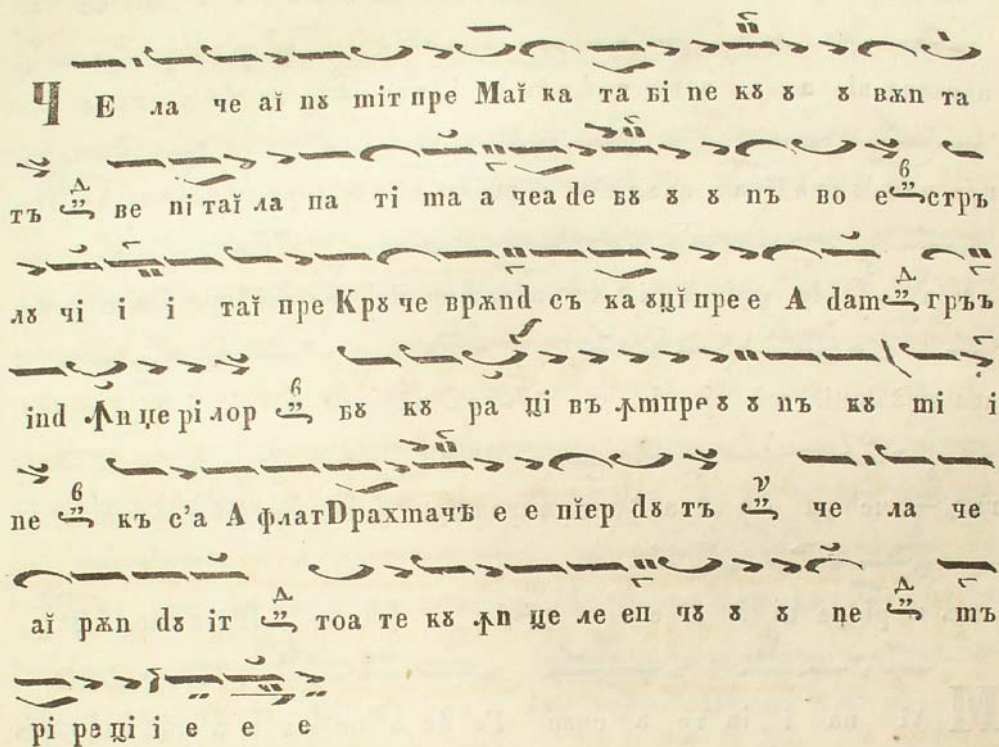 Ч Е ла че аĭ пȣ mіт пре Маĭ ка та бі пе кȣ ȣ ȣ вѫп та
тъ ве пі таĭ ла па ті ma а чеа de бȣ ȣ ȣ пъ во е стръ
лȣ чі і і таĭ пре Крȣ че врѫпd съ ка ȣцĭ пре е А dam гръъ
ind ꙟп це рі лор бȣ кȣ ра ці въ ꙟmпре ȣ ȣ пъ кȣ mі і
пе къ с’а А флат Dрахmа чѣ е е пĭер dȣ тъ че ла че
аĭ рѫп dȣ іт тоа те кȣ ꙟп це ле еп чȣ ȣ ȣ пе mъ
рі ре ці і е е е